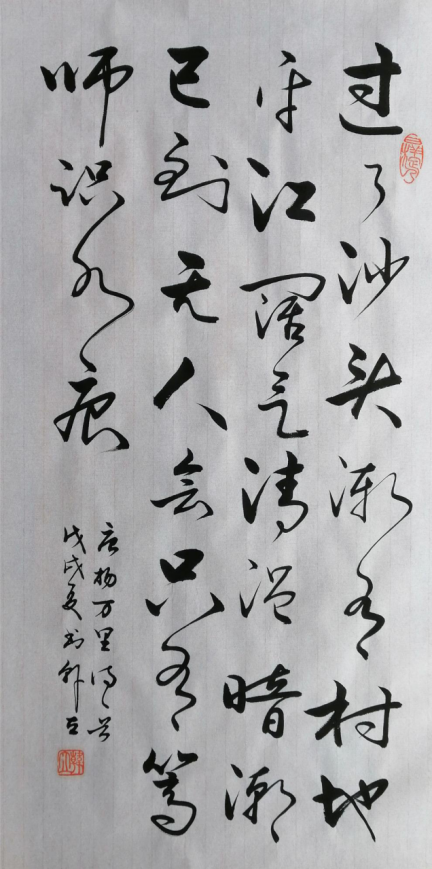 过了沙头渐有村地
平江阔气清温暗潮
已到无人会只有篙
师识水痕
唐杨万里诗
戊戌夏书